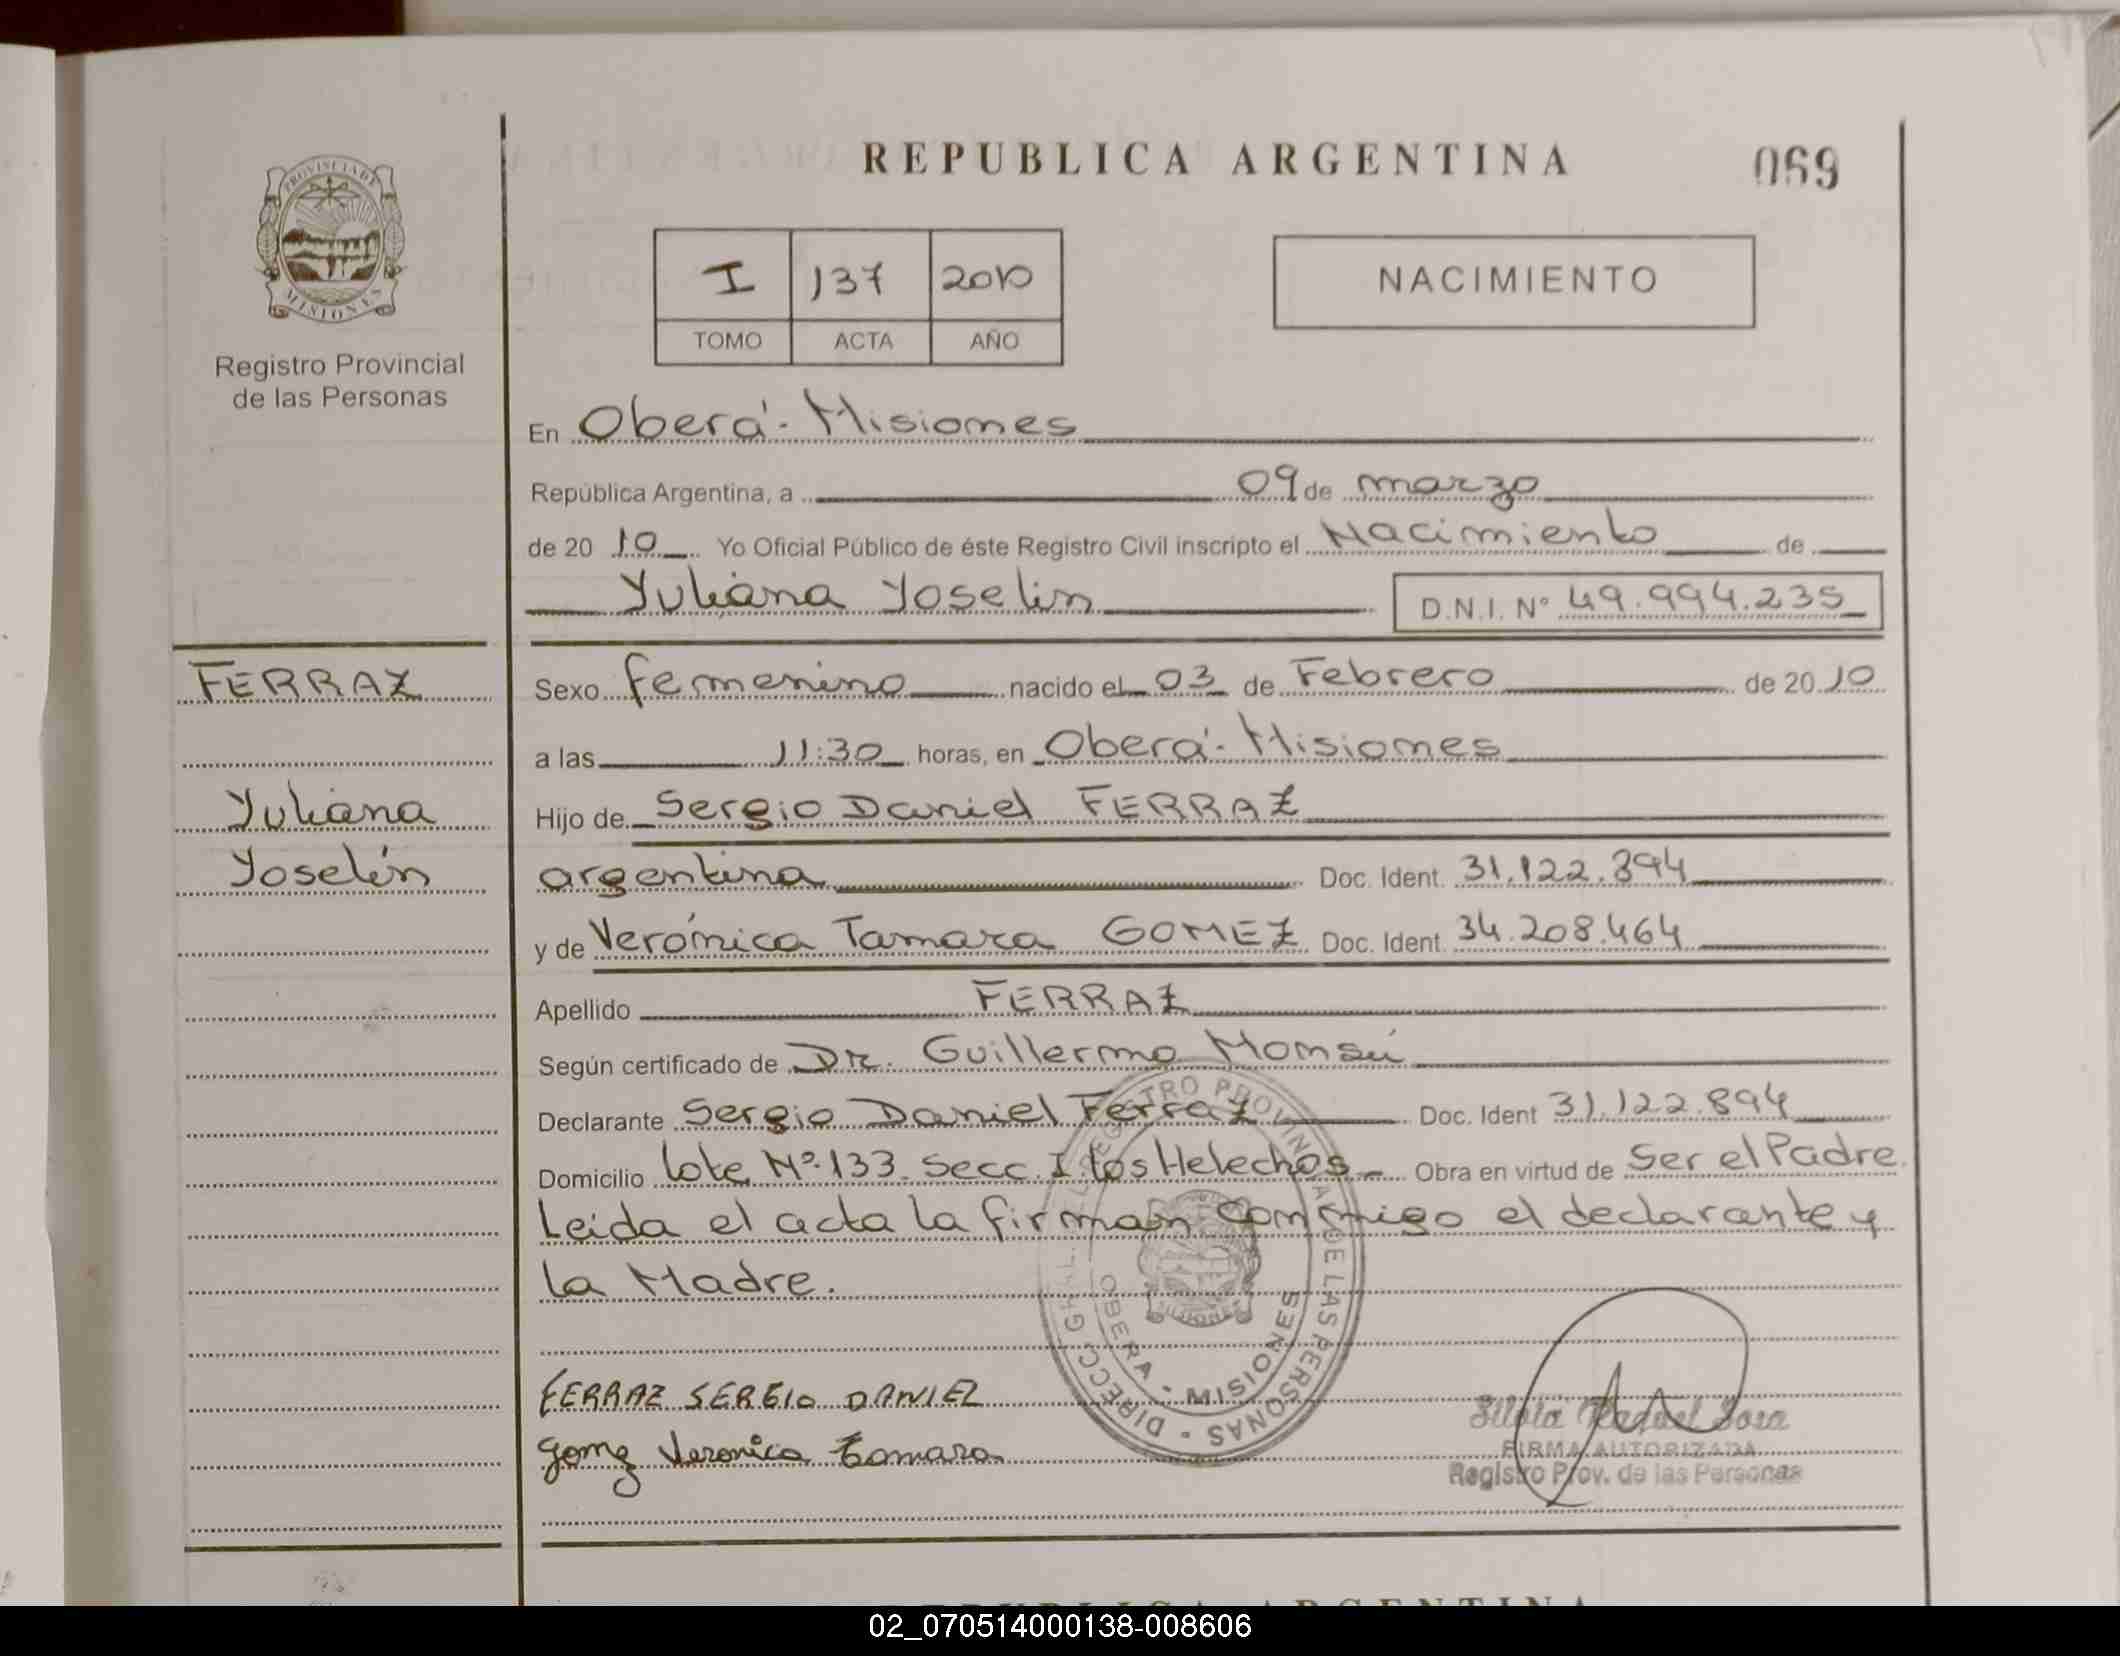 REPUBLICA ARGENTINA
069
PROVINCIA DE
MISIONES
Registro Provincial
de las Personas
I 137 2010
TOMO ACTA AÑO
NACIMIENTO
En Oberá - Misiones
República Argentina, a 09 de marzo
de 20 10 Yo Oficial Público de éste Registro Civil inscripto el Nacimiento de
Yuliana Yoselin D.N.I. Nº 49.994.235
FERRAZ
Yuliana
Yoselin
Sexo femenino nacido el 03 de Febrero de 20 10
a las 11:30 horas, en Oberá - Misiones
Hijo de Sergio Daniel FERRAZ
argentina Doc. Ident. 31.122.894
y de Verónica Tamara GOMEZ Doc. Ident. 34.208.464
Apellido FERRAZ
Según certificado de Dr. Guillermo
Declarante Sergio Daniel Ferraz Doc. Ident 31.122.894
Domicilio Lote Nº 133 Secc. I Los Helechos Obra en virtud de Ser el Padre.
Leida el acta la firman conmigo el declarante y
la Madre.
DIRECC. GRAL. DEL REGISTRO PROVINCIAL DE LAS PERSONAS
OBERA - MISIONES
FERRAZ SERGIO DANIEL
Gomez Veronica Tamara
Raquel
FIRMA AUTORIZADA
Registro Prov. de las Personas
REPUBLICA ARGENTINA
02_070514000138-008606